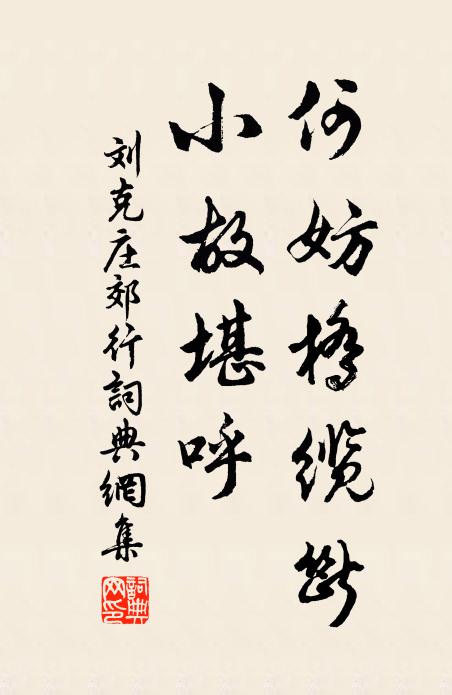 何妨橋缆斷
小故堪呼
刘克庄郊行詞典網集
詞典网印